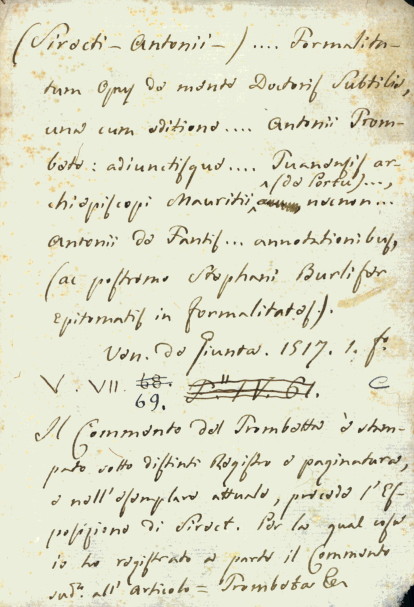 (Sirecti - Antonii -) .... Formalita-
tum Opus de mente Doctoris Subtilis,
una cum editione .... Antonii Trom-
bete: adiunctisque .... Tuanensis ar-
(de Portu) ...,
chiepiscopi Mauritii necnon ...
Antonii de Fantis ... annotationibus,
(ac postremo Stephani Burlifer
Epitomatis in formalitates.).
Ven. de Giunta. 1517. 1. fo.
V. VII. 68. P. II IV. 61. C
69.
Il Commento del Trombetta è stam-
pato sotto distinti Registro e paginatura,
e nell'esemplare attuale, precede l'Es-
posizione di Sirect. Per la qual cosa
io ho registrato a parte il Commento
sud.o all'Articolo = Trombeta &c